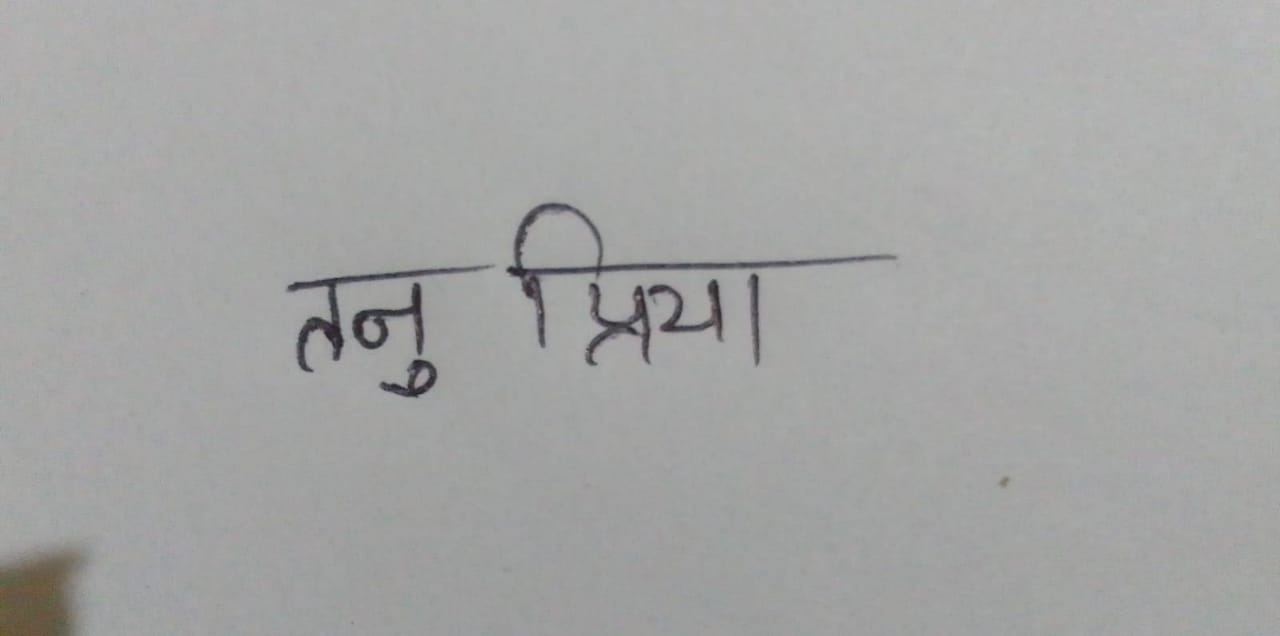 तनु प्रिया